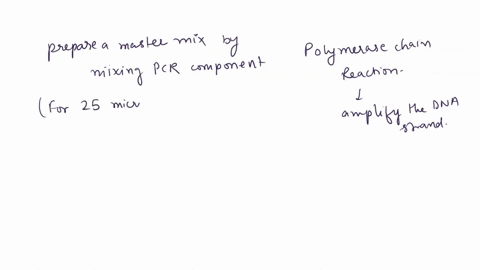 prepare a master mix by
mixing PCR component
(for 25 micr
Polymerase chain
Reaction.
↓
amplify the DNA
strand.